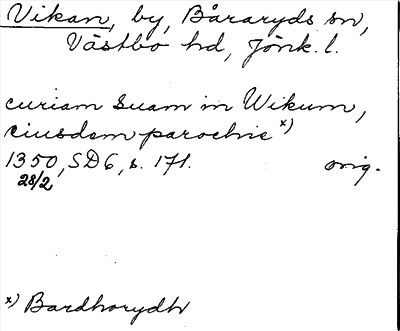 Vikan, by, Båraryds sn,
Västbo hd, Jönk. l.
curiam suam in Wikum,
eiusdem parochie x)
1350, SD 6, s. 171. orig.
28/2
x) Bardhorydh